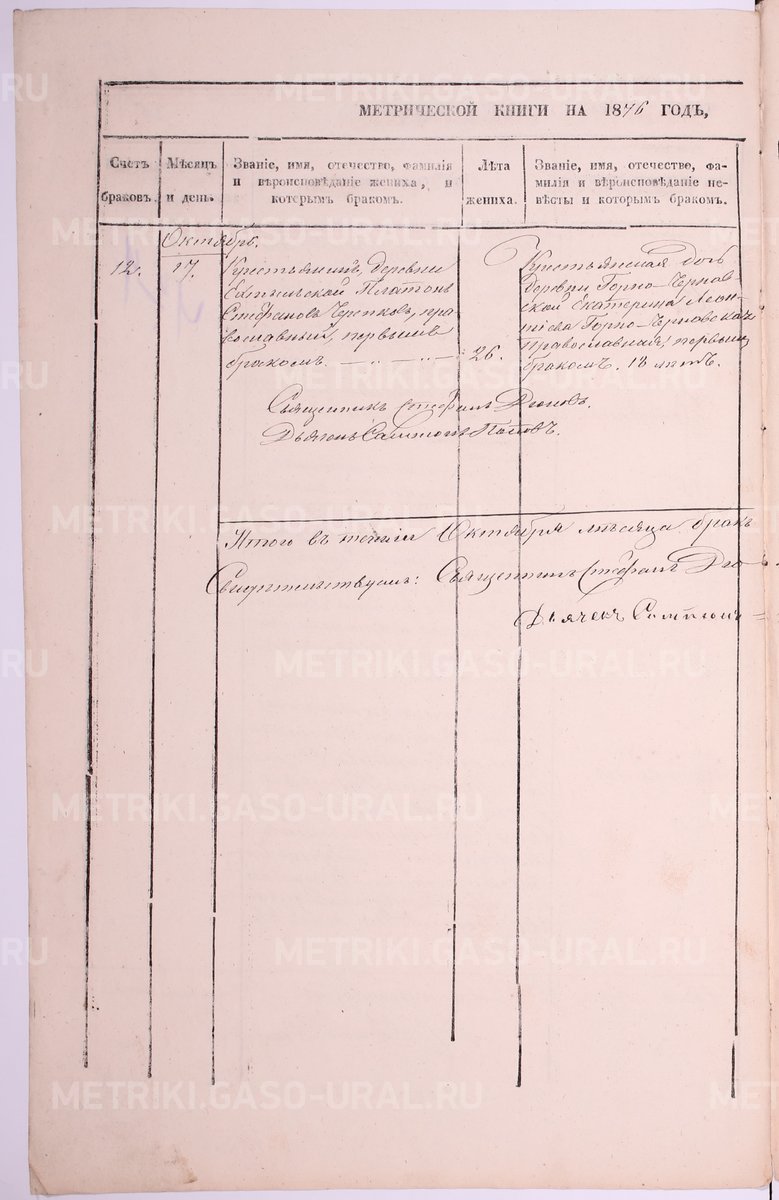 МЕТРИЧЕСКОЙ КНИГИ НА 1876 ГОДЪ,
Счетъ браковъ.
Мѣсяцъ и день.
Званіе, имя, отечество, фамилія
и вѣроисповѣданіе жениха, и
которымъ бракомъ.
Лѣта жениха.
Званіе, имя, отечество, фа-
милія и вѣроисповѣданіе не-
вѣсты и которымъ бракомъ.
Октябрь.
12. 17.
Крестьянинъ, деревни
Платонъ
Стефановъ Черепковъ, пра
вославный, первымъ
бракомъ.
26.
Крестьянская дочь
деревни Горно-Чернов
ской Екатерина Леон
тіева Горно-Черновская
православная, первымъ
бракомъ. 18 лѣтъ.
Священникъ Стефанъ
Поповъ.
Итого въ теченіи Октября мѣсяца бракъ
Свидѣтельствуемъ: Священникъ Стефанъ
Дьячекъ
METRIKI.GASO-URAL.RU